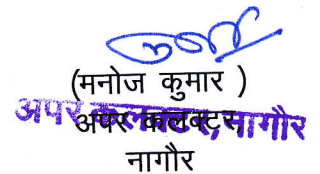 (मनोज कुमार )
अपर कलक्टर, नागौर
अपर कलक्टर
नागौर